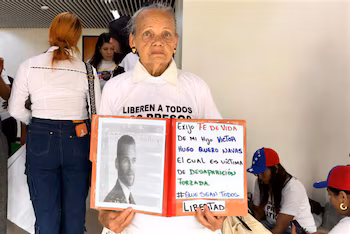 LIBEREN A TODOS
EXIJO FE DE VIDA
DE MI HIJO VICTOR
HUGO QUERO NAVAS
EL CUAL ES VÍCTIMA
DE DESAPARICIÓN
FORZADA.
#QUE SEAN TODOS
LIBERTAD